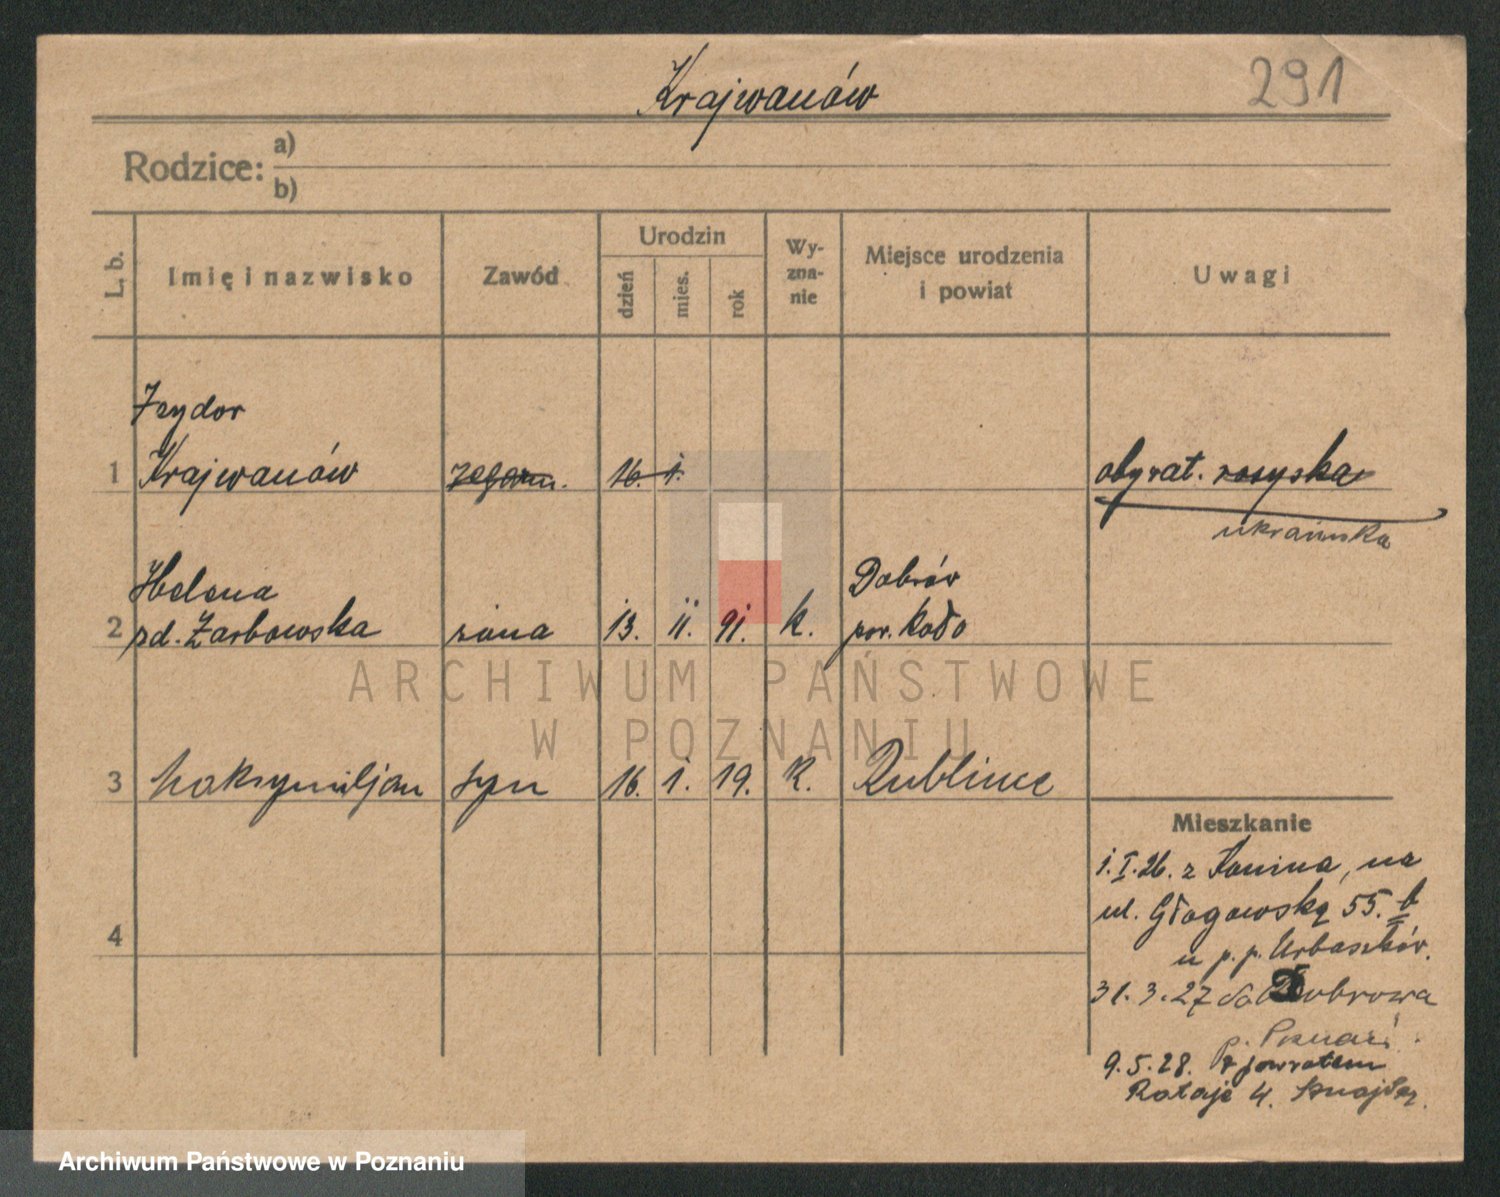 Krajwanów
291
Rodzice: a)
b)
L. b.
Imię i nazwisko
Zawód
Urodzin
dzień
mies.
rok
Wy-
zna-
nie
Miejsce urodzenia
i powiat
Uwagi
Izydor
1 Krajwanów zegarm. 16. 1. obywat. rosyska
ukraińska
Helena Dobrów
2 zd. Żarbowska żona 13. 11. 91. K. pow. Koło
3 Maksymiljan syn 16. 1. 19. K. Lublinie
4
Mieszkanie
1. I. 26. z Konina, na
ul. Głogowską 55. b
u p. p. Urbasików.
31. 3. 27 do Dobrowa
p. Poznań
9. 5. 28. z powrotem
Rataje 4.
ARCHIWUM PAŃSTWOWE
W POZNANIU
Archiwum Państwowe w Poznaniu